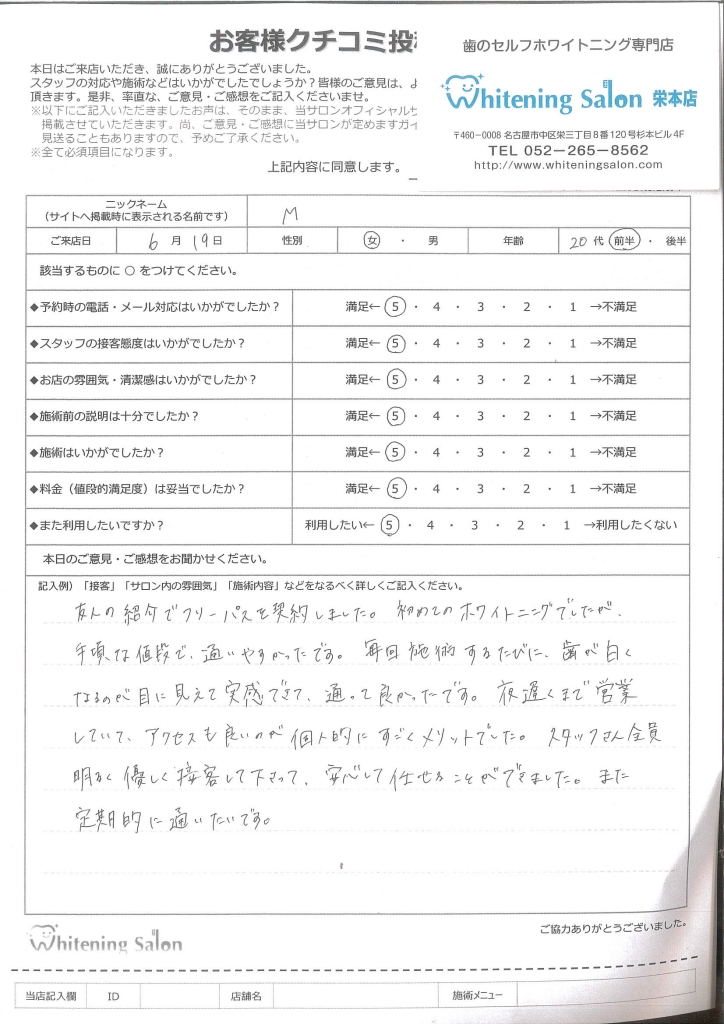 お客様クチコミ投
歯のセルフホワイトニング専門店
Whitening Salon 栄本店
〒460-0008 名古屋市中区栄三丁目8番120号杉本ビル4F
TEL 052-265-8562
http://www.whiteningsalon.com
本日はご来店いただき、誠にありがとうございました。
スタッフの対応や施術などはいかがでしたでしょうか？皆様のご意見は、よ
頂きます。是非、率直な、ご意見・ご感想をご記入くださいませ。
※以下にご記入いただきましたお声は、そのまま、当サロンオフィシャルサ
掲載させていただきます。尚、ご意見・ご感想に当サロンが定めますガイ
見送ることもありますので、予めご了承ください。
※全て必須項目になります。
上記内容に同意します。
ニックネーム
（サイトへ掲載時に表示される名前です） M
ご来店日 6 月 19 日 性別 女 ・ 男 年齢 20 代 前半 ・ 後半
該当するものに ○ をつけてください。
◆予約時の電話・メール対応はいかがでしたか？ 満足← 5 ・ 4 ・ 3 ・ 2 ・ 1 →不満足
◆スタッフの接客態度はいかがでしたか？ 満足← 5 ・ 4 ・ 3 ・ 2 ・ 1 →不満足
◆お店の雰囲気・清潔感はいかがでしたか？ 満足← 5 ・ 4 ・ 3 ・ 2 ・ 1 →不満足
◆施術前の説明は十分でしたか？ 満足← 5 ・ 4 ・ 3 ・ 2 ・ 1 →不満足
◆施術はいかがでしたか？ 満足← 5 ・ 4 ・ 3 ・ 2 ・ 1 →不満足
◆料金（値段的満足度）は妥当でしたか？ 満足← 5 ・ 4 ・ 3 ・ 2 ・ 1 →不満足
◆また利用したいですか？ 利用したい← 5 ・ 4 ・ 3 ・ 2 ・ 1 →利用したくない
本日のご意見・ご感想をお聞かせください。
記入例）「接客」「サロン内の雰囲気」「施術内容」などをなるべく詳しくご記入ください。
友人の紹介でフリーパスを契約しました。初めてのホワイトニングでしたが、
手頃な値段で、通いやすかったです。毎回施術するたびに、歯が白く
なるのが目に見えて実感できて、通って良かったです。夜遅くまで営業
していて、アクセスも良いのが個人的にすごくメリットでした。スタッフさん全員
明るく優しく接客して下さって、安心して任せることができました。また
定期的に通いたいです。
Whitening Salon
ご協力ありがとうございました。
当店記入欄 ID 店舗名 施術メニュー